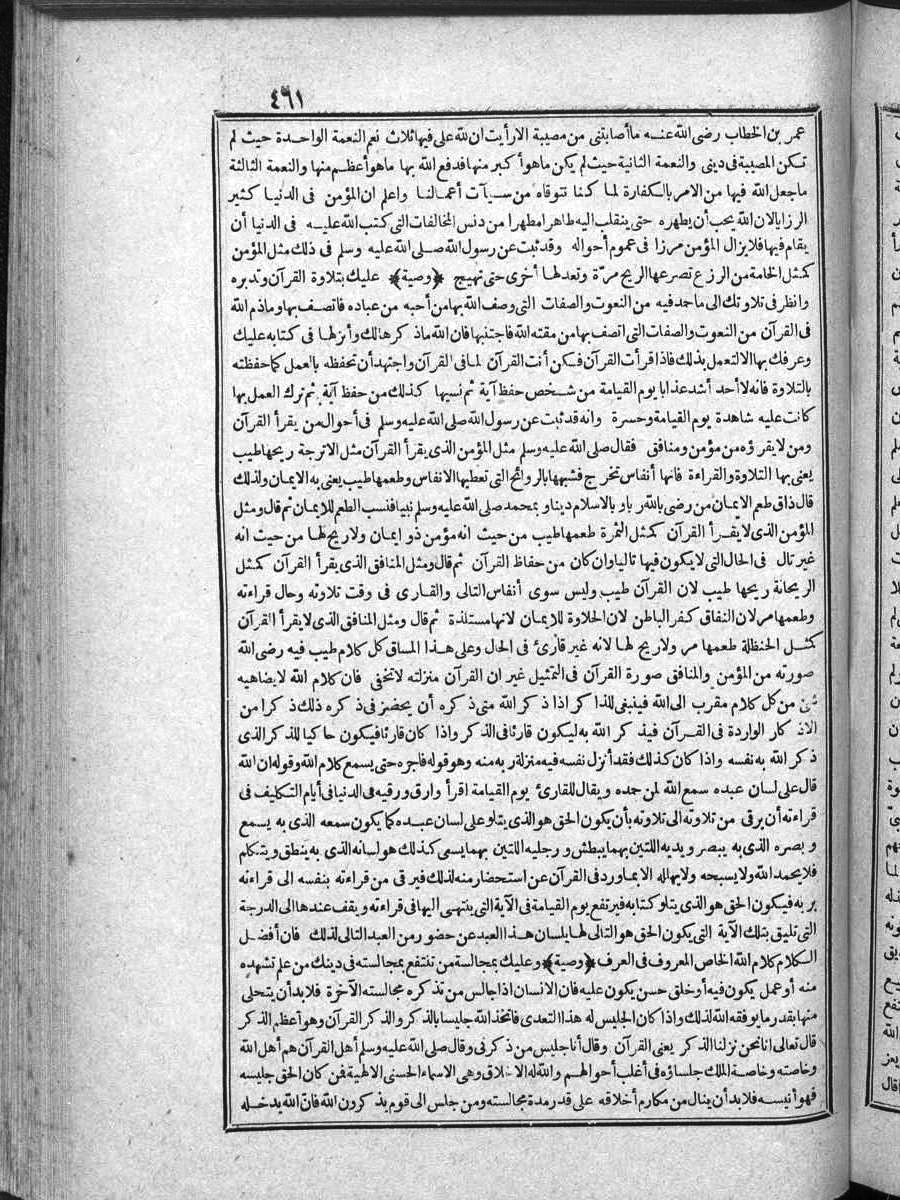 ٤٦١
عمر بن الخطاب رضى الله عنه ما أصابتنى من مصيبة الا رأيت ان لله على فيها ثلاث نعم النعمة الواحدة حيث لم
تكن المصيبة فى دينى والنعمة الثانية حيث لم يكن ما هو أكبر منها فدفع الله بها ما هو أعظم منها والنعمة الثالثة
ما جعل الله فيها من الامر بالكفارة لما كنا نتوقاه من سيآت أعمالنا واعلم ان المؤمن فى الدنيا كثير
الرزايا لان الله يحب أن يطهره حتى ينقلب اليه طاهرا مطهرا من دنس المخالفات التى كتب الله عليه فى الدنيا أن
يقام فيها فلا يزال المؤمن مرزا فى عموم أحواله وقد ثبت عن رسول الله صلى الله عليه وسلم فى ذلك مثل المؤمن
كمثل الخامة من الزرع تصرعها الريح مرة وتعدلها أخرى حتى تهيج ﴿وصية﴾ عليك بتلاوة القرآن وتدبره
وانظر فى تلاوتك الى ما حمد فيه من النعوت والصفات التى وصف الله بها من أحبه من عباده فاتصف بها وما ذم الله
فى القرآن من النعوت والصفات التى اتصف بها من مقته الله فاجتنبها فان الله ما ذكرها لك وأنزلها فى كتابه عليك
وعرفك بها الا لتعمل بذلك فاذا قرأت القرآن فكن أنت القرآن لما فى القرآن واجتهد أن تحفظه بالعمل كما حفظته
بالتلاوة فانه لا أحد أشد عذابا يوم القيامة من شخص حفظ آية ثم نسيها كذلك من حفظ آية ثم ترك العمل بها
كانت عليه شاهدة يوم القيامة وحسرة وانه قد ثبت عن رسول الله صلى الله عليه وسلم فى أحوال من يقرأ القرآن
ومن لا يقرؤه من مؤمن ومنافق فقال صلى الله عليه وسلم مثل المؤمن الذى يقرأ القرآن مثل الاترجة ريحها طيب
يعنى بها التلاوة والقراءة فانها أنفاس تخرج فشبهها بالروائح التى تعطيها الانفاس وطعمها طيب يعنى به الايمان ولذلك
قال ذاق طعم الايمان من رضى بالله ربا وبالاسلام دينا وبمحمد صلى الله عليه وسلم نبيا فنسب الطعم للايمان ثم قال ومثل
المؤمن الذى لا يقرأ القرآن كمثل التمرة طعمها طيب من حيث انه مؤمن ذو إيمان ولا ريح لها من حيث انه
غير تال فى الحال التى لا يكون فيها تاليا وان كان من حفاظ القرآن ثم قال ومثل المنافق الذى يقرأ القرآن كمثل
الريحانة ريحها طيب لان القرآن طيب وليس سوى أنفاس التالى والقارى فى وقت تلاوته وحال قراءته
وطعمها مر لان النفاق كفر الباطن لان الحلاوة للايمان لانها مستلذة ثم قال ومثل المنافق الذى لا يقرأ القرآن
كمثل الحنظلة طعمها مر ولا ريح لها لانه غير قارئ فى الحال وعلى هذا المساق كل كلام طيب فيه رضى الله
صورته من المؤمن والمنافق صورة القرآن فى التمثيل غير ان القرآن منزلته لا تخفى فان كلام الله لا يضاهيه
شئ من كل كلام مقرب الى الله فينبغى للذاكر اذا ذكر الله متى ذكره أن يحضر فى ذكره ذلك ذكرا من
الاذكار الواردة فى القرآن فيذكر الله به ليكون قارئا فى الذكر واذا كان قارئا فيكون حاكيا للذكر الذى
ذكر الله به نفسه واذا كان كذلك فقد أنزل نفسه فيه منزلة ربه منه وهو قوله فاجره حتى يسمع كلام الله وقوله ان الله
قال على لسان عبده سمع الله لمن حمده ويقال للقارئ يوم القيامة اقرأ وارق ورقيه فى الدنيا فى أيام التكليف فى
قراءته أن يرقى من تلاوته الى تلاوته بأن يكون الحق هو الذى يتلو على لسان عبده كما يكون سمعه الذى به يسمع
وبصره الذى به يبصر ويديه اللتين بهما يبطش ورجليه اللتين بهما يسعى كذلك هو لسانه الذى به ينطق ويتكلم
فلا يحمد الله ولا يسبحه ولا يهلله الا بما ورد فى القرآن عن استحضار منه لذلك فيرقى من قراءته بنفسه الى قراءته
بربه فيكون الحق هو الذى يتلو كتابه فيرتفع يوم القيامة فى الآية التى ينتهى اليها فى قراءته ويقف عندها الى الدرجة
التى تليق بتلك الآية التى يكون الحق هو التالى لها بلسان هذا العبد عن حضور من العبد التالى لذلك فان أفضل
الكلام كلام الله الخاص المعروف فى العرف ﴿وصية﴾ وعليك بمجالسة من تنتفع بمجالسته فى دينك من علم تشهده
منه أو عمل يكون فيه أو خلق حسن يكون عليه فان الانسان اذا جالس من تذكره مجالسته الآخرة فلا بد أن يتحلى
منها بقدر ما يوفقه الله لذلك واذا كان الجليس له هذا التعدى فاتخذ الله جليسا بالذكر والذكر القرآن وهو أعظم الذكر
قال تعالى انا نحن نزلنا الذكر يعنى القرآن وقال أنا جليس من ذكرنى وقال صلى الله عليه وسلم أهل القرآن هم أهل الله
وخاصته وخاصة الملك جلساؤه فى أغلب أحوالهم والله له الاخلاق وهى الاسماء الحسنى الالهية فمن كان الحق جليسه
فهو أنيسه فلا بد أن ينال من مكارم أخلاقه على قدر مدة مجالسته ومن جلس الى قوم يذكرون الله فان الله يدخله